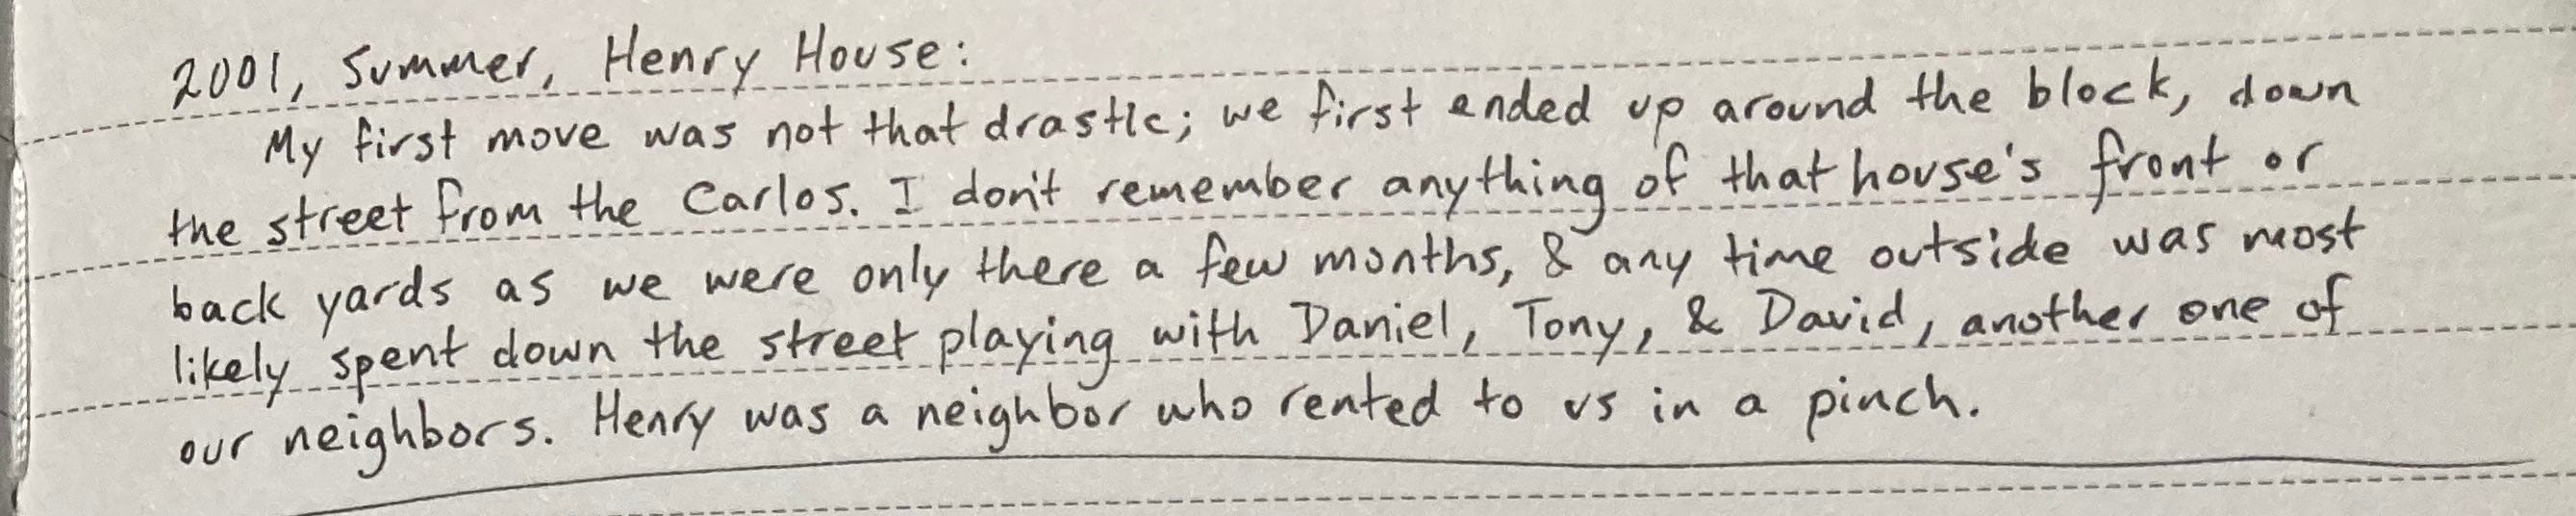 2001, Summer, Henry House:
My first move was not that drastic; we first ended up around the block, down
the street from the Carlos. I don't remember anything of that house's front or
back yards as we were only there a few months, & any time outside was most
likely spent down the street playing with Daniel, Tony, & David, another one of
our neighbors. Henry was a neighbor who rented to us in a pinch.